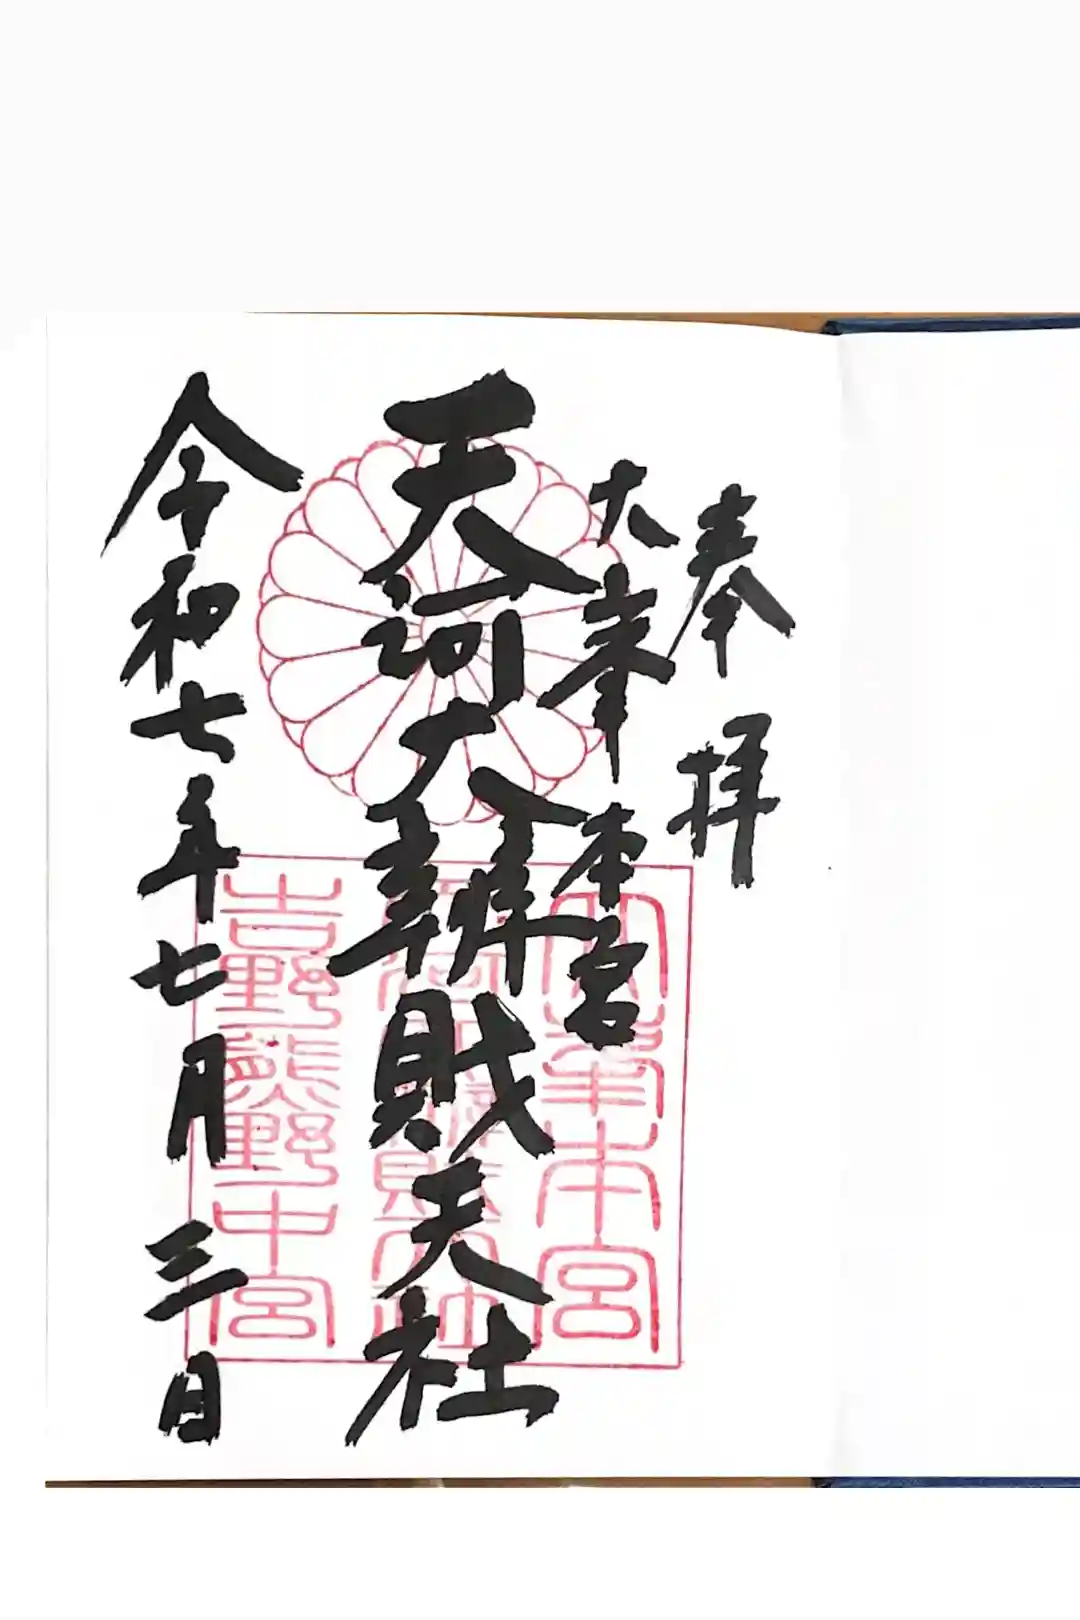 奉拝
大峯本宮
天河大辨財天社
令和七年七月三日
大峯本宮
天河大辨財天社
吉野熊野中宮